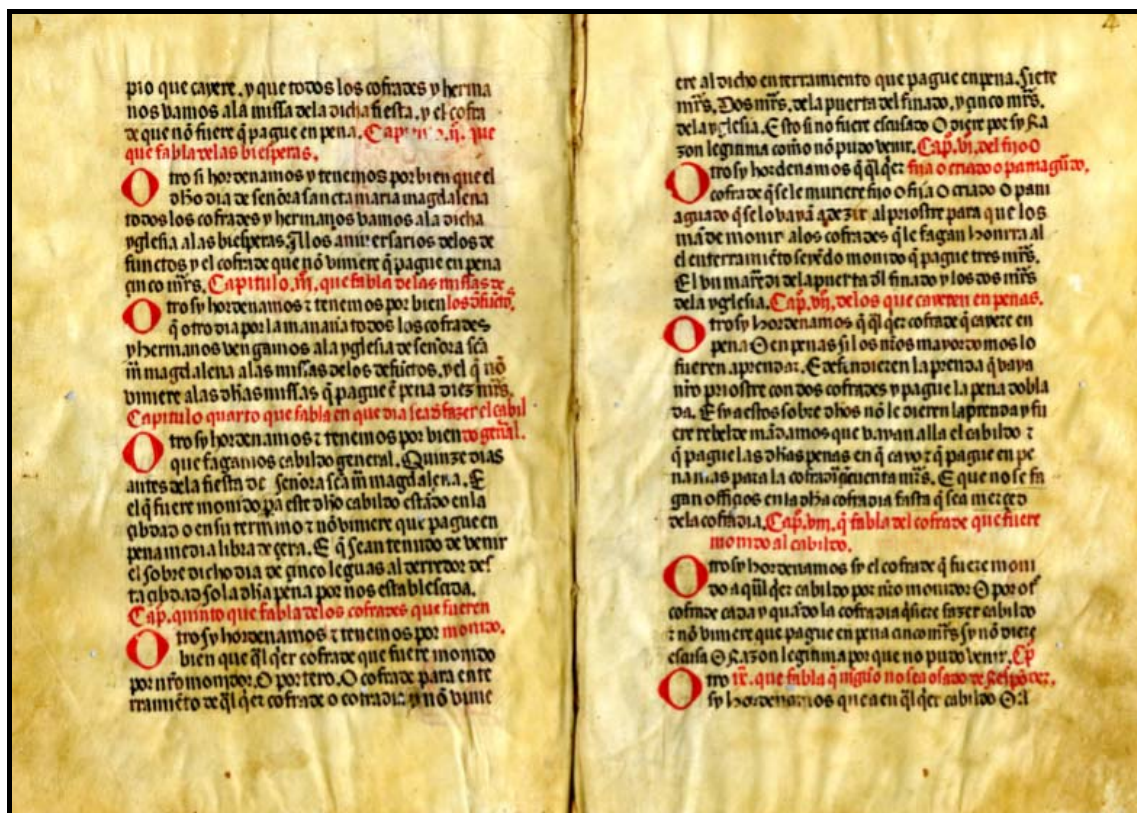 pio que cayere. y que todos los cofrades y herma
nos vamos ala missa dela dicha fiesta. y el cofra
de que nõ fuere q̃ pague en pena. Capitulo .ij. que
que fabla delas biesperas.
Otro si hordenamos y tenemos por bien que el
dho dia de señora sancta maria magdalena
todos los cofrades y hermanos vamos ala dicha
yglesia alas biesperas. aniversarios delos de
functos y el cofrade que nõ viniere q̃ pague en pena
çinco mrs̃. Capitulo .iij. que fabla delas missas de
Otro sy hordenamos τ tenemos por bien los dfuctos.
q̃ otro dia por la manana todos los cofrades
y hermanos vengamos ala yglesia de señora sc̃a
m̃ magdalena alas missas delos defuctos. y el q̃ nõ
viniere alas dhas missas q̃ pague ẽ pena diez mrs̃.
Capitulo quarto que fabla en que dia sea d fazer el cabil
Otro sy hordenamos τ tenemos por bien do gen̄al.
que fagamos cabildo general. Quinze dias
antes dela fiesta de señora sc̃a m̃ magdalena. E
el q̃ fuere monido pa este dho cabildo estãdo en la
çibdad o en su termino τ nõ viniere que pague en
pena media libra de çera. E q̃ sean tenudo de venir
el sobre dicho dia de çinco leguas al derredor des
ta çibdad so la dha pena por nos establesçida.
Cap. quinto que fabla delos cofrades que fueren
Otro sy hordenamos τ tenemos por monido.
bien que q̃l q̃er cofrade que fuere monido
por nr̃o monidor. O portero. O cofrade para ente
rramiẽto de q̃l q̃er cofrade o cofradia y nõ vinie
ere al dicho enterramiento que pague en pena. Siete
mrs̃. Dos mrs̃. dela puerta del finado. y çinco mrs̃.
dela yglesia. Esto si no fuere escusado O diere por sy Ra
zon legitima como nõ pudo venir. Cap. vj. del fijo O
Otro sy hordenamos q̃ q̃l q̃er fija o criado o pamaguado.
cofrade q̃ se le muriere fijo O fija O criado O pani
aguado q̃ se lo vayã a dezir al prioste para que los
mãde monir alos cofrades q̃ le fagan honrra al
el enterramiẽto seyẽdo monido q̃ pague tres mrs̃.
El vn marãdi dela puerta dl finado y los dos mrs̃
dela yglesia. Cap. vij. de los que cayeren en penas.
Otro sy hordenamos q̃ q̃l q̃er cofrade q̃ cayere en
pena O en penas si los nr̃os mayordomos lo
fueren a prendar. E defendieren la prenda q̃ vaya
nr̃o prioste con dos cofrades y pague la pena dobla
da. E sy a estos sobre dhos nõ le dieren la prenda y fu
ere rebelde mãdamos que vayan alla el cabildo τ
q̃ pague las dhas penas en q̃ cayo τ q̃ pague en pe
na mas para la cofradia çicuenta mrs̃. E que no se fa
gan offiçios en la dha cofradia fasta q̃ sea merçed
dela cofradia. Cap. viij. q̃ fabla del cofrade que fuere
monido al cabildo.
Otro sy hordenamos sy el cofrade q̃ fuere moni
do a q̃l q̃er cabildo por nr̃o monidor O por ot̃
cofrade cada y quãdo la cofradia q̃siere fazer cabildo
τ nõ viniere que pague en pena çinco mrs̃ sy nõ diere
escusa O Razon legitima por que no pudo venir. Cp̃
Otro ix. que fabla q̃ niguo no sea osado de Respõder.
sy hordenamos que a en q̃l q̃er cabildo O a